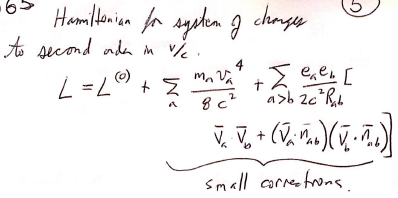 6> Hamiltonian for system of charges (5)
to second order in v/c.
L = L^(0) + Σ_a m_a v_a^4 / 8 c^2 + Σ_{a>b} e_a e_b / 2c^2 R_ab [
v̄_a · v̄_b + (v̄_a · n̄_ab)(v̄_b · n̄_ab)]
small corrections.